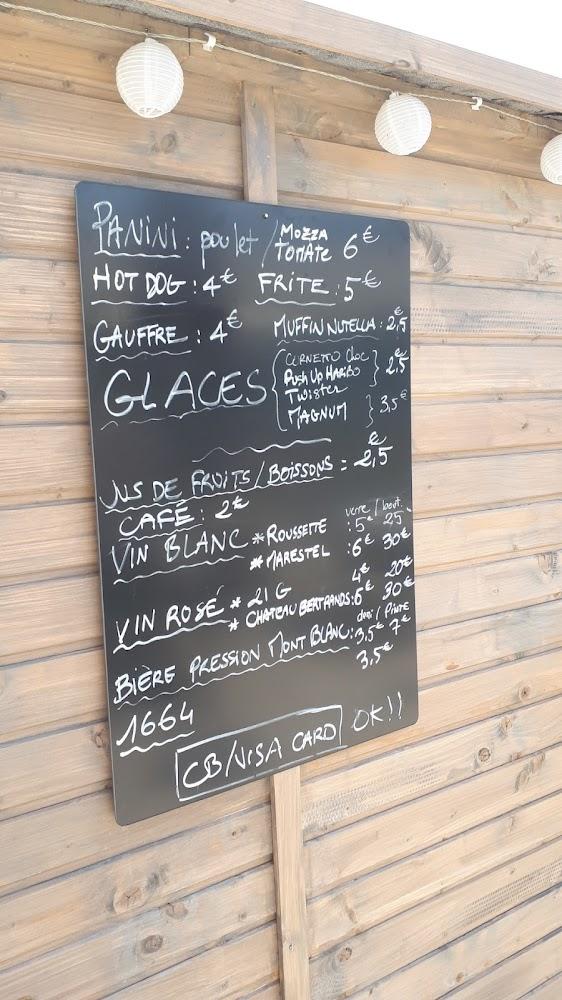 PANINI : poulet / MOZZA TOMATE 6€
HOT DOG : 4€ FRITE : 5€
GAUFFRE : 4€ MUFFIN NUTELLA : 2,5€
GLACES { CORNETTO Choc } 2,5€
Push Up HARIBO
TWISTER
MAGNUM } 3,5€
JUS DE FRUITS / BOISSONS = 2,5€
CAFÉ : 2€
verre / bout.
VIN BLANC * ROUSSETTE : 5€ 25
* MARESTEL : 6€ 30€
VIN ROSÉ * 21 G 4€ 20€
* CHATEAU BERTRANDS : 6€ 30€
demi / Pinte
BIÈRE PRESSION MONT BLANC : 3,5€ 7€
1664 3,5€
CB/VISA CARD OK!!